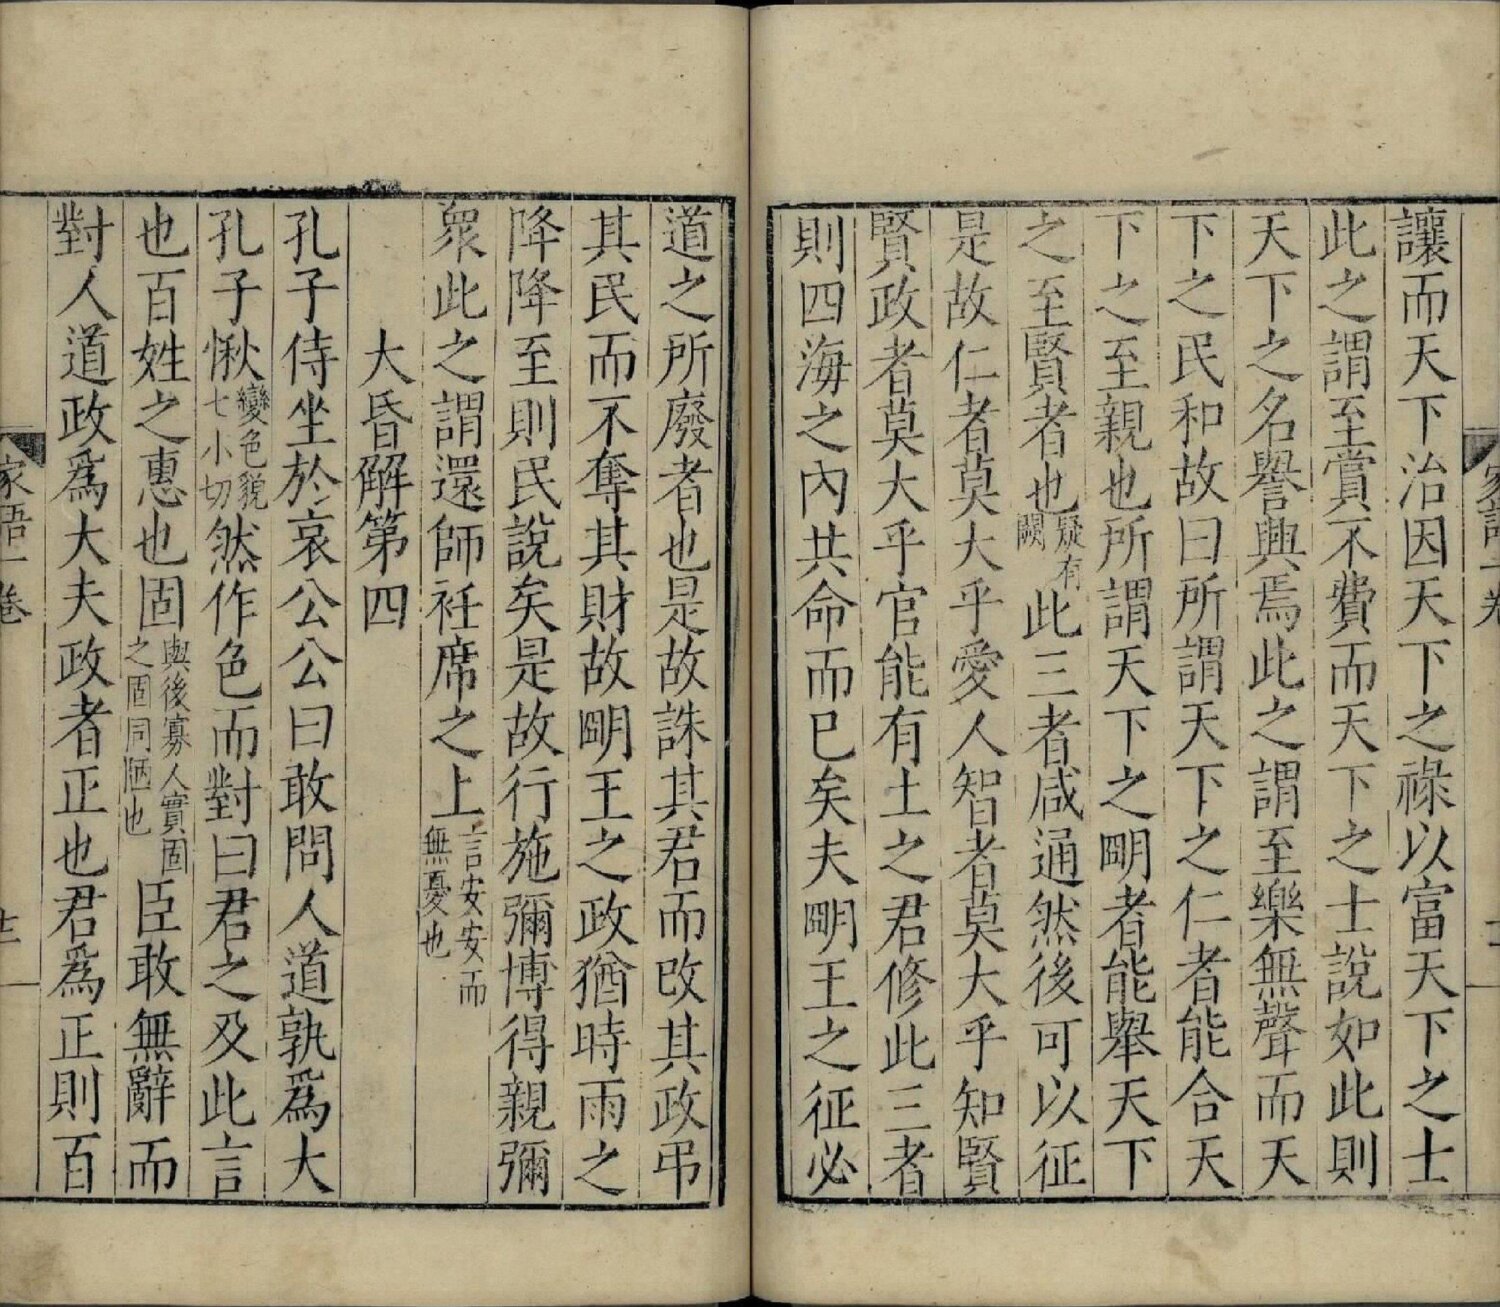 讓而天下治因天下之祿以富天下之士
此之謂至賞不費而天下之士說如此則
天下之名譽興焉此之謂至樂無聲而天
下之民和故曰所謂天下之仁者能合天
下之至親也所謂天下之明者能舉天下
之至賢者也疑有闕此三者咸通然後可以征
是故仁者莫大乎愛人智者莫大乎知賢
賢政者莫大乎官能有土之君修此三者
則四海之內共命而已矣夫明王之征必
道之所廢者也是故誅其君而改其政弔
其民而不奪其財故明王之政猶時雨之
降降至則民說矣是故行施彌博得親彌
衆此之謂還師衽席之上言安安而無憂也
大昏解第四
孔子侍坐於哀公公曰敢問人道孰爲大
孔子愀變色貌七小切然作色而對曰君之及此言
也百姓之惠也固與後寡人實固之固同陋也臣敢無辭而
對人道政爲大夫政者正也君爲正則百
家語一卷